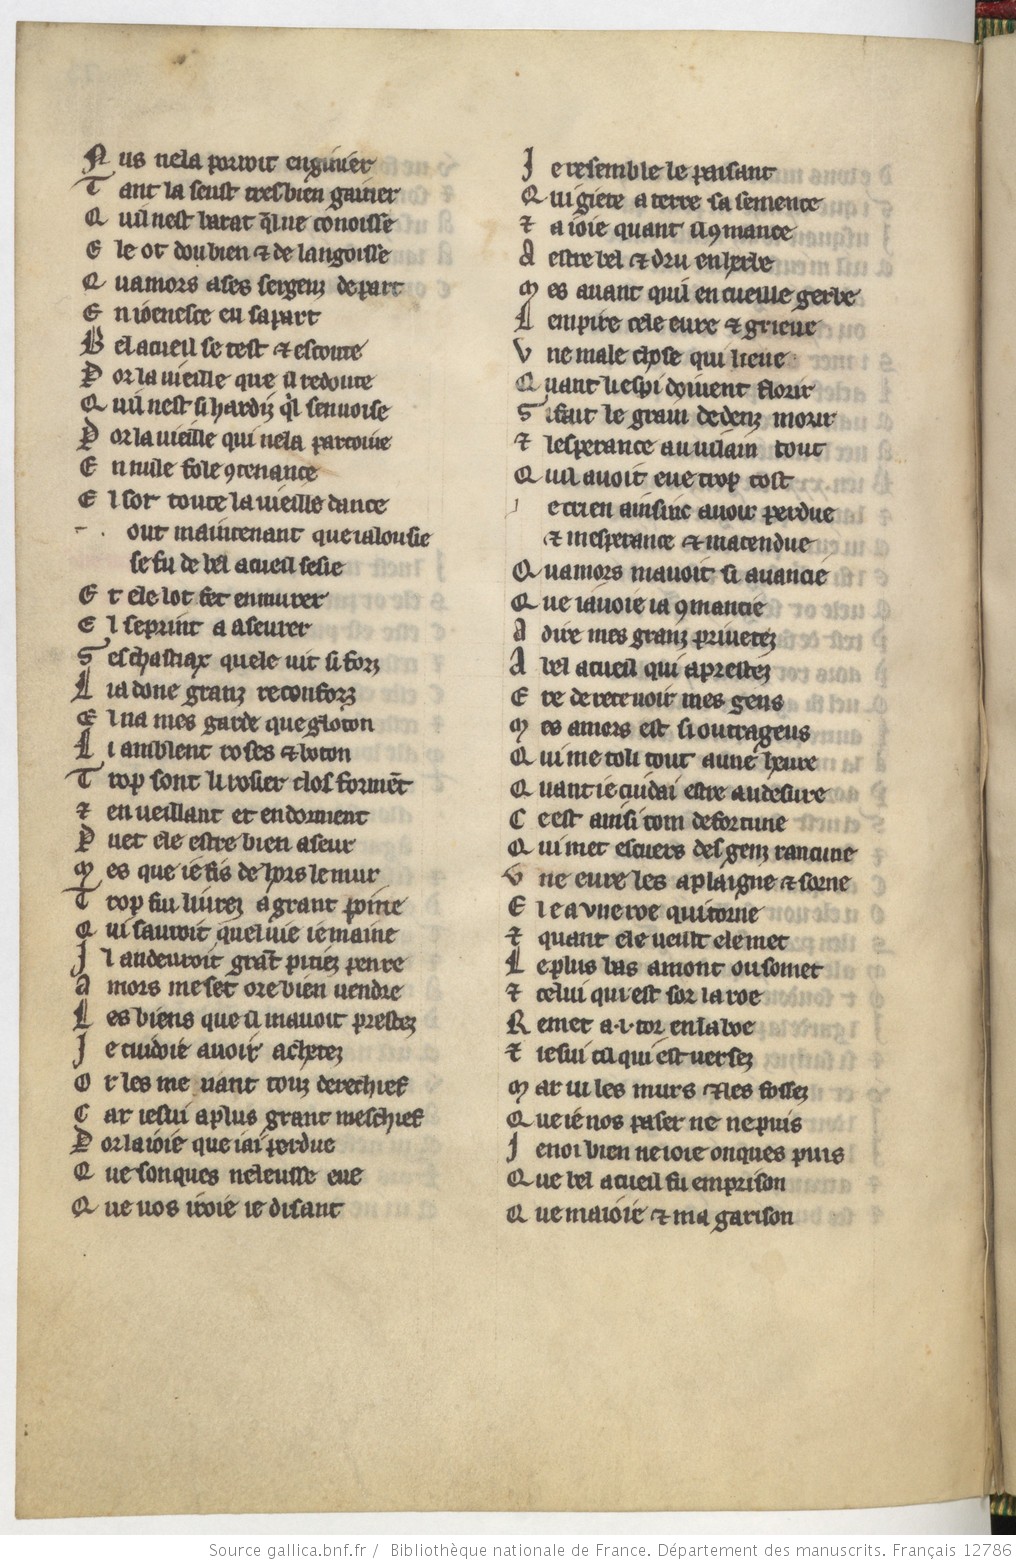 N us ne la porroit enginier
T ant la seust tres bien gaitier
Q uil nest barat ql ne conoisse
E le ot dou bien ⁊ de langoisse
Q uamors a ses sergenz depart
E n ioenesce en sa part
B el acueil se test ⁊ escoute
P or la uieille que il redoute
Q uil nest si hardiz ql senuoise
P or la uieille qui nela parcoiue
E n nule fole ꝯtenance
E l sot toute la uieille dance
out maintenant que ialousie
se fu de bel acueil sesie
E t ele lot fet enmurer
E l se print a aseurer
S es chastiax quele uit si forz
L ia done granz reconforz
E l na mes garde que gloton
L i amblent roses ⁊ boton
T rop sont li rosier clos forment
⁊ en ueillant et en dorment
P uet ele estre bien aseur
M es que ie fis dehors le mur
T rop fu liurez a grant poine
Q ui sauroit quel uie ie maine
I l andeuroit grāt pitiez penre
A mors me set ore bien uendre
L es biens que il mauoit prestez
I e cuidoie auoir achetez
O r les me uant touz derechief
C ar ie sui a plus grant meschief
P or la ioie que iai perdue
Q ue sonques ne leusse eue
Q ue uos iroie ie disant
I e resemble le paisant
Q ui giete a terre sa semence
⁊ a ioie quant il ꝯmance
A estre bel ⁊ dru en herbe
M es auant quil en cueille gerbe
L empire cele eure ⁊ grieue
V ne male chose qui lieue
Q uant li espi doiuent florir
S i fait le grain dedenz morir
⁊ lesperance au uilain tout
Q uil auoit eue trop tost
e crien ainsinc auoir perdue
⁊ mesperance ⁊ matendue
Q uamors mauoit si auancie
Q ue iauoie ia ꝯmancie
A dire mes granz priuetez
A bel acueil qui aprestez
E re de receuoir mes geus
M es amors est si outrageus
Q ui me toli tout a une heure
Q uant ie cuidai estre au desure
C e est ainsi com de fortune
Q ui met es cuers des genz rancune
V ne eure les aplaigne ⁊ sorne
E le a vne roe qui torne
⁊ quant ele ueult ele met
L e plus bas amont ou somet
⁊ celui qui est sor la roe
R emet a .i. tor en la boe
⁊ ie sui cil qui est uersez
M ar ui les murs ⁊ les fossez
Q ue ie nos paser ne ne puis
I e noi bien ne ioie onques puis
Q ue bel acueil fu emprison
Q ue maioie ⁊ ma garison
Source gallica.bnf.fr / Bibliothèque nationale de France. Département des manuscrits. Français 12786